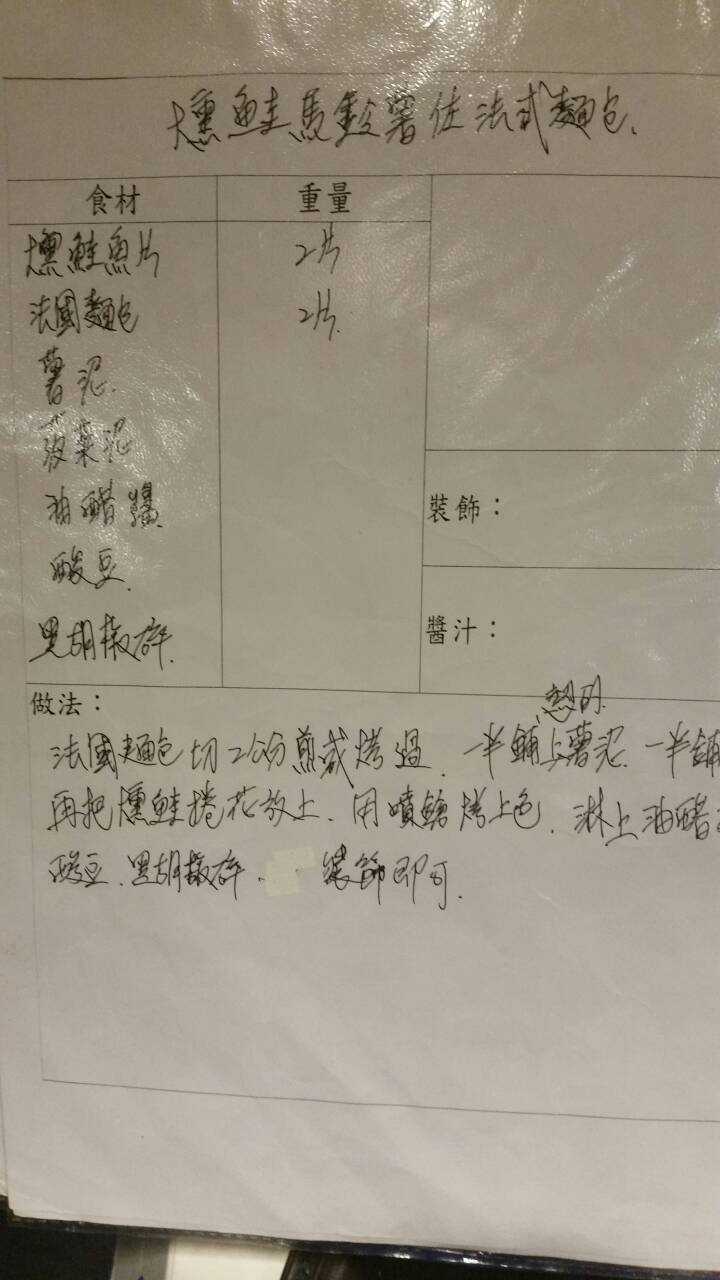 燻鮭馬鈴薯佐法式麵包.
食材 重量
燻鮭魚片 2片
法國麵包 2片.
薯泥.
菠菜泥
油醋
酸豆.
黑胡椒碎.
裝飾：
醬汁：
做法：
熱的.
法國麵包切2公分煎或烤過.一半鋪上薯泥.一半鋪
再把燻鮭捲花放上.用噴鎗烤上色.淋上油醋
酸豆.黑胡椒碎. 裝飾即可.